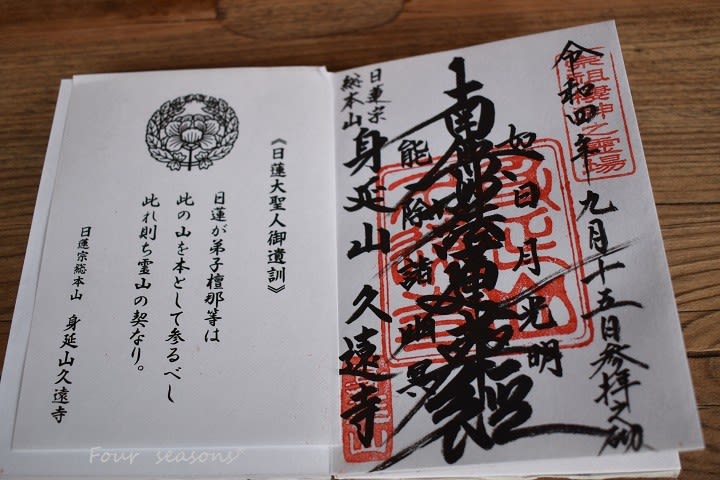 令和四年九月十五日参拝之砌
宗祖棲神之霊場
如日月光明
南無妙法蓮華経
能除諸幽冥
日蓮宗
総本山
身延山久遠寺
《日蓮大聖人御遺訓》
日蓮が弟子檀那等は
此の山を本として参るべし
此れ則ち霊山の契なり。
日蓮宗総本山 身延山久遠寺
Four seasons